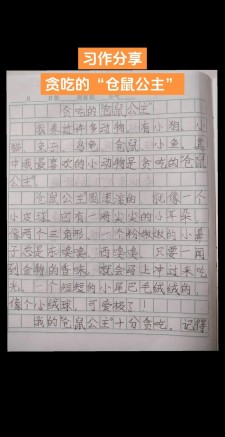 习作分享
贪吃的“仓鼠公主”
贪吃的“仓鼠公主”
我养过许多动物，有小狗、小
猫、兔子、乌龟、仓鼠、小鱼，其
中我最喜欢的小动物是贪吃的“仓鼠
公主”。
“仓鼠公主”圆滚滚的，就像一个
小皮球，还有一两尖尖的小耳朵，
像两个三角形。一个粉嫩嫩的小鼻
子总是东嗅嗅，西嗅嗅，只要一闻
到食物的香味，就会马上冲过来吃
光。一个短短的小尾巴毛绒绒的，
像个小绒球，可爱极了！
我的“仓鼠公主”十分贪吃。记得